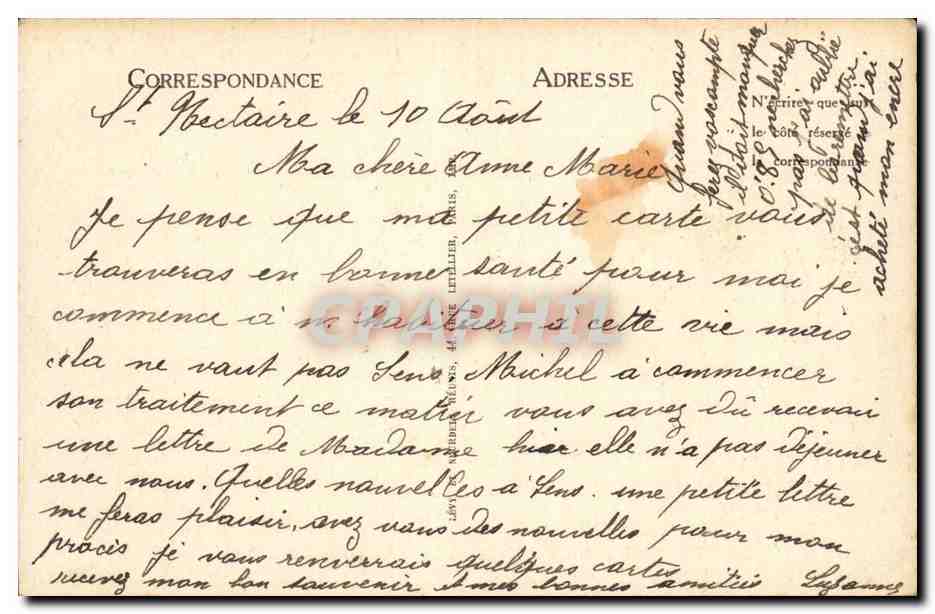 CORRESPONDANCE
ADRESSE
St Nectaire le 10 Août
Ma chère Anne Marie
Je pense que ma petite carte vous
trouveras en bonne santé pour moi je
commence à m habituer à cette vie mais
cela ne vaut pas Sens Michel à commencer
son traitement ce matin vous avez dû recevoir
une lettre de Madame hier elle n'a pas déjeuner
avec nous. Quelles nouvelles à Sens. une petite lettre
me feras plaisir, avez vous des nouvelles pour mon
procès je vous renverrais quelques cartes
recevez mon bon souvenir et mes bonnes amitiés Suzanne
Quand vous
ferez vos compte
il était manquer
0.85 ne cherchez
pas j'ai oublié
de le remettre
c'est quand j'ai
acheté mon encre
N'écrire que sur
le côté réservé à
la correspondance
LÉVY ET NEURDEIN RÉUNIS, 44, RUE LETELLIER, PARIS, IMP.
CPAPHIL